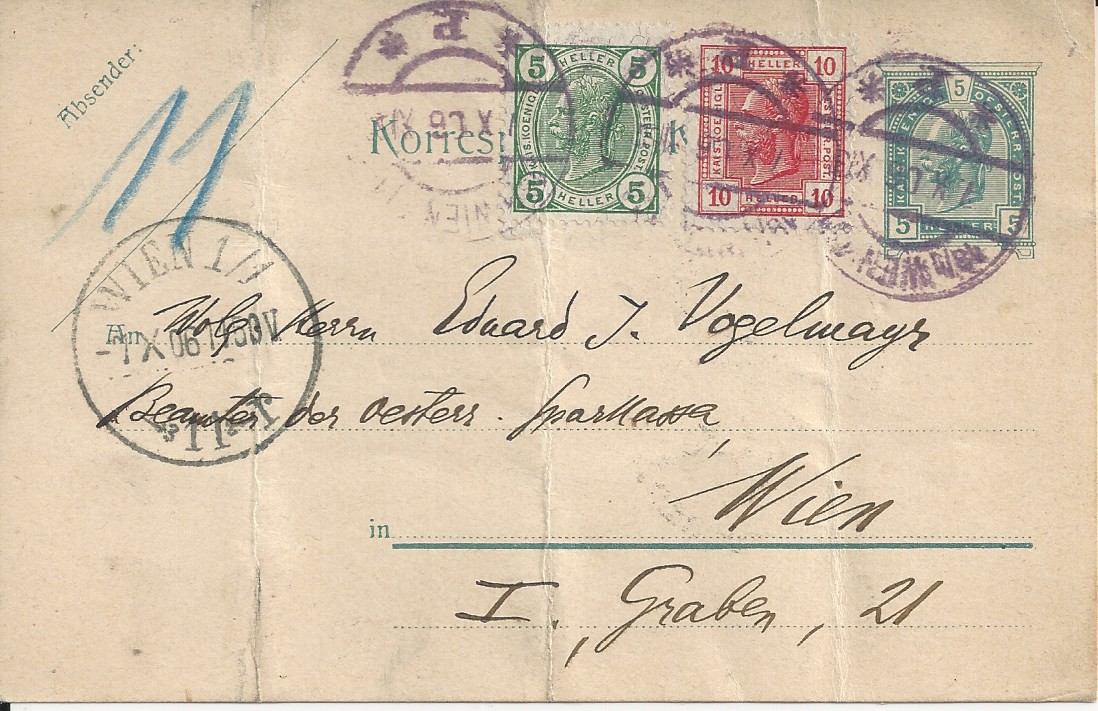 Absender:
11
5 HELLER 5
KAIS. KOENIGL. OESTERR. POST.
5 HELLER 5
10 HELLER 10
KAIS. KOENIGL. OESTERR. POST.
10 HELLER 10
5
KAIS. KOENIGL. OESTERR. POST.
5 HELLER 5
P
P
P
WIEN
WIEN
WIEN 1/1
-7 X 06
An Herrn Eduard J. Vogelmayr
Beamter der oesterr. Sparkassa,
Wien
in
I., Graben, 21